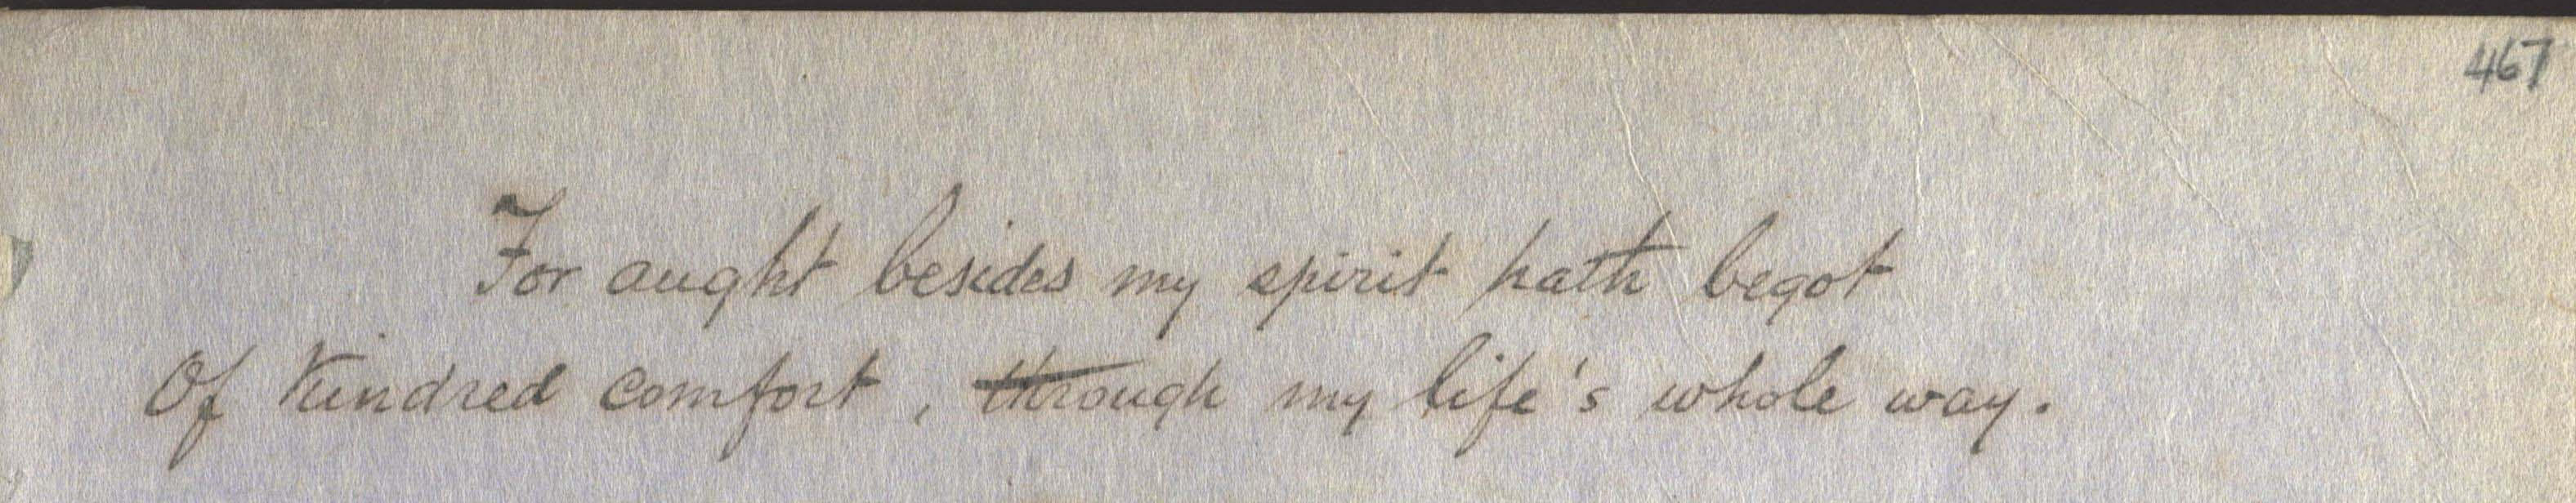 467
For aught besides my spirit hath begot
Of kindred comfort, through my life's whole way.